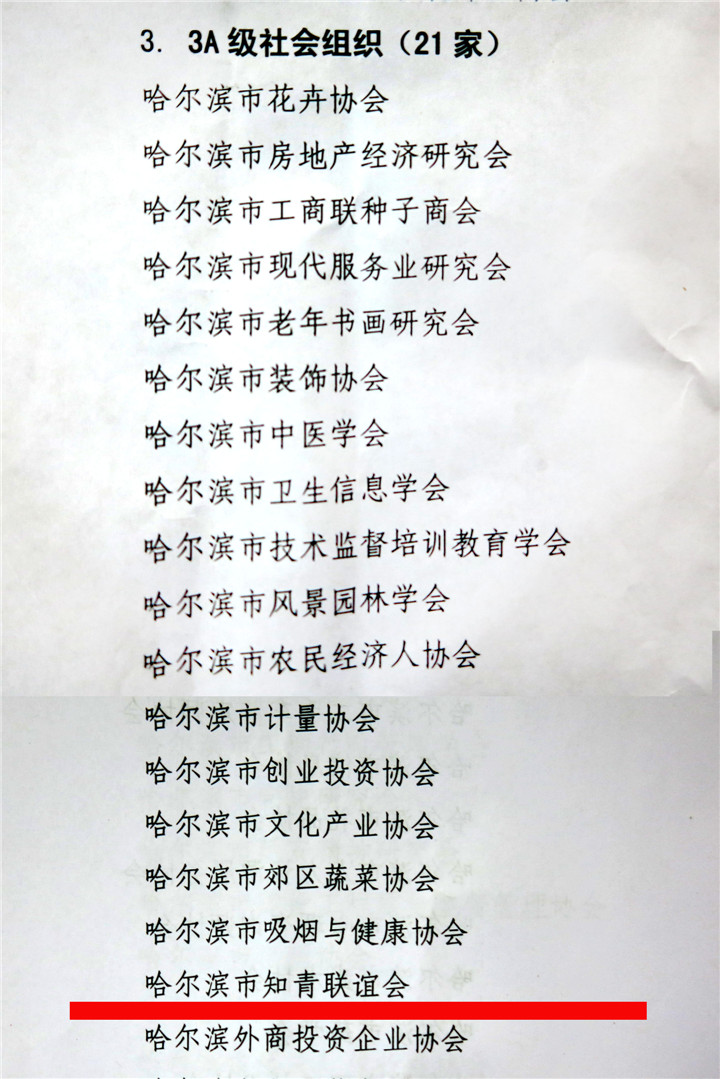 3. 3A级社会组织（21家）
哈尔滨市花卉协会
哈尔滨市房地产经济研究会
哈尔滨市工商联种子商会
哈尔滨市现代服务业研究会
哈尔滨市老年书画研究会
哈尔滨市装饰协会
哈尔滨市中医学会
哈尔滨市卫生信息学会
哈尔滨市技术监督培训教育学会
哈尔滨市风景园林学会
哈尔滨市农民经济人协会
哈尔滨市计量协会
哈尔滨市创业投资协会
哈尔滨市文化产业协会
哈尔滨市郊区蔬菜协会
哈尔滨市吸烟与健康协会
哈尔滨市知青联谊会
哈尔滨外商投资企业协会